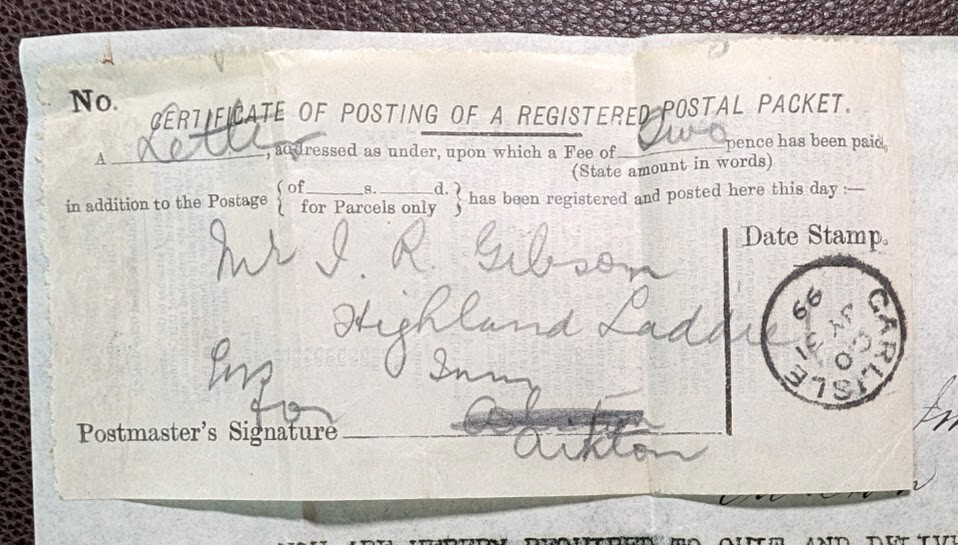 No.
CERTIFICATE OF POSTING OF A REGISTERED POSTAL PACKET.
A Letter, addressed as under, upon which a Fee of Two pence has been paid,
(State amount in words)
in addition to the Postage { of ______s. ______d. } has been registered and posted here this day :—
for Parcels only
Mr I. R. Gibson
Highland Laddie
Inn
Date Stamp.
CARLISLE
JY 31
99
for
Postmaster's Signature
Aikton
YOU ARE HEREBY REQUIRED TO QUIT AND